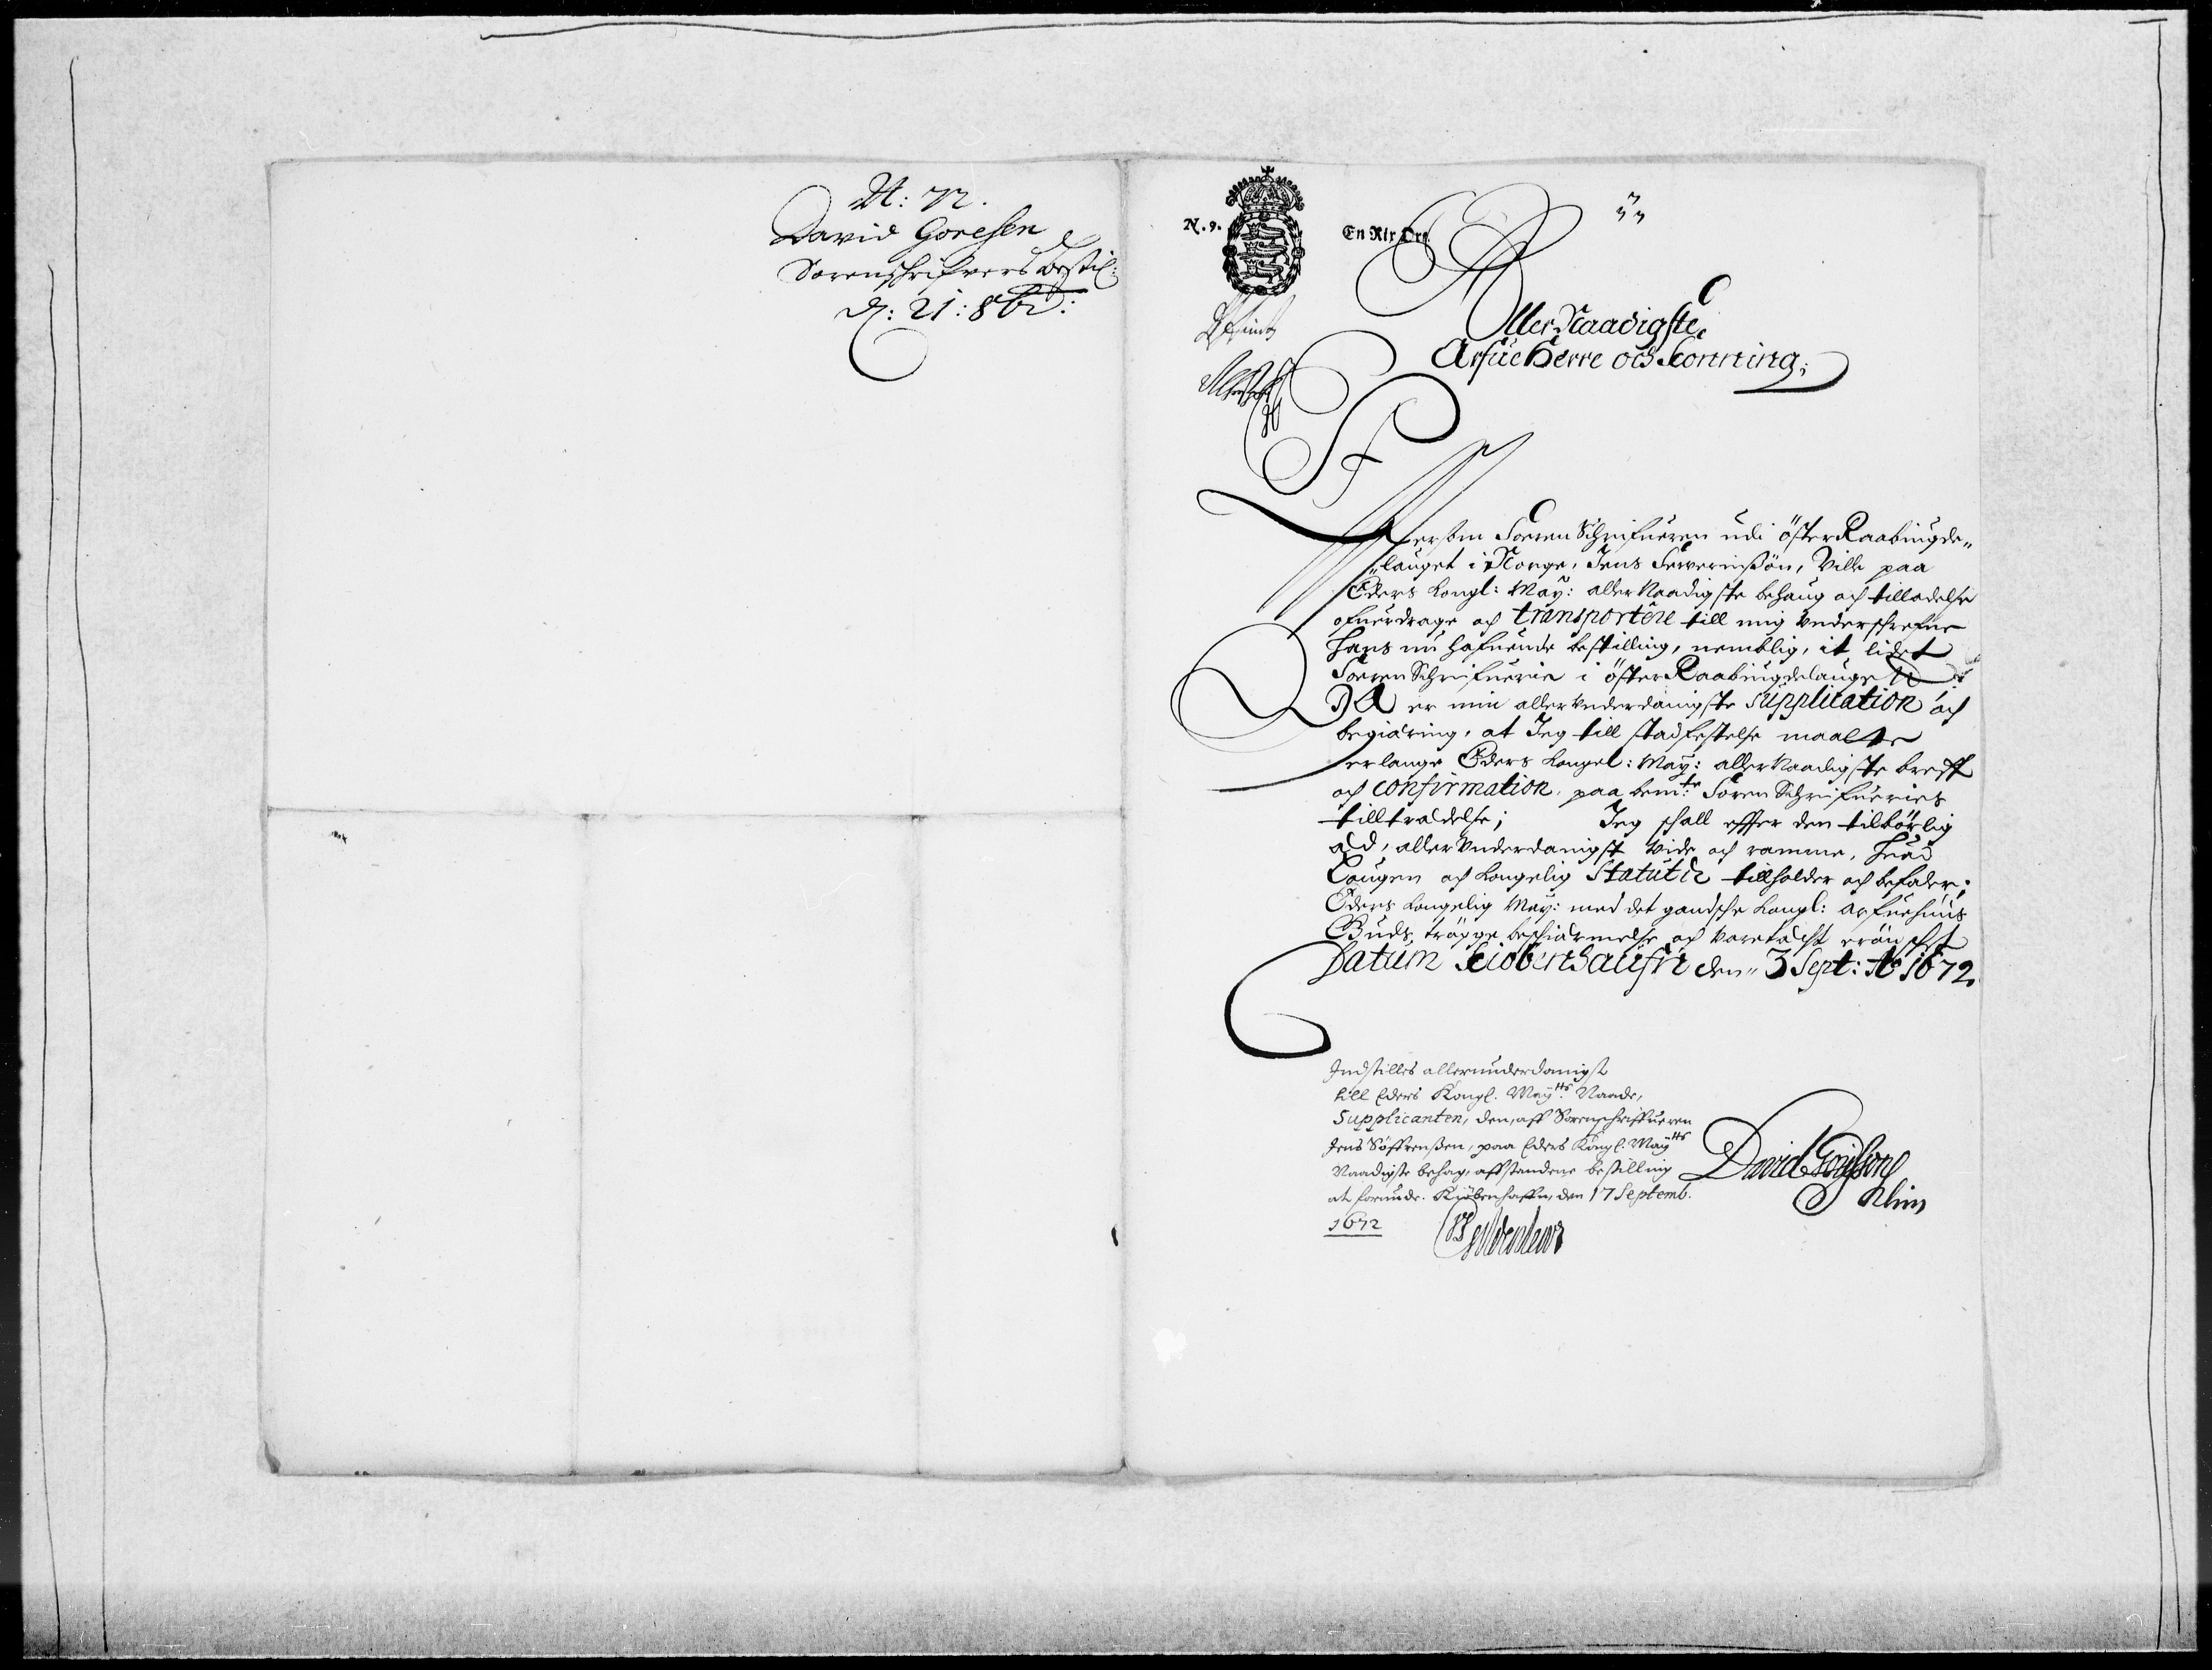 N: 72.
David Goresen
Sorenschrifvers bestil:
d: 21: 8b:
N. 9.
En Rix Ort.
Aller Naadigste
Arfue Herre och Konning;
Efftersom Soeren Schrifueren udi öster Raabÿugde„
„lauget i Norge, Jens Severinßön, Ville paa
Eders Kongl: May: aller Naadigste behaug och tilladelse
ofuerdrage och transportere till mig underschrefne
hans nu hafuende bestilling, nemblig, it lidet
Soeren Schrifuerie i öster Raabÿugdelauget
DA er min aller underdanigste supplication och
begiæring, at Jeg till stadfestelse maatte
erlange Eders Kongel: May: aller Naadigste breff
och confirmation, paa bemte Soren Schrifueries
tilltrædelse; Jeg schall effter den tilbörlig
æd, aller underdanigst vide och ramme, huad
Lougen och Kongelig Statuter tillholder och befaler;
Eders Kongelig May: med det gandsche Kongl: arfuehuus
Guds trögge beschiærmelse och varetæcht erönschet
Datum Kiöbenhaufn den„ 3 Sept: Ao 1672.
Indstilles allerunderdanigst
till Eders Kongl. Mayts Naade,
Supplicanten, den, aff Sorenschriffueren
Jens Söffrenßen, paa Eders Kongl: Mayts
Naadigste behag, affstandene bestilling
at forunde. Kiöbenhaffn, den 17 Septemb.
1672
UF Gyldenlewe
David Goriſsong
Klim